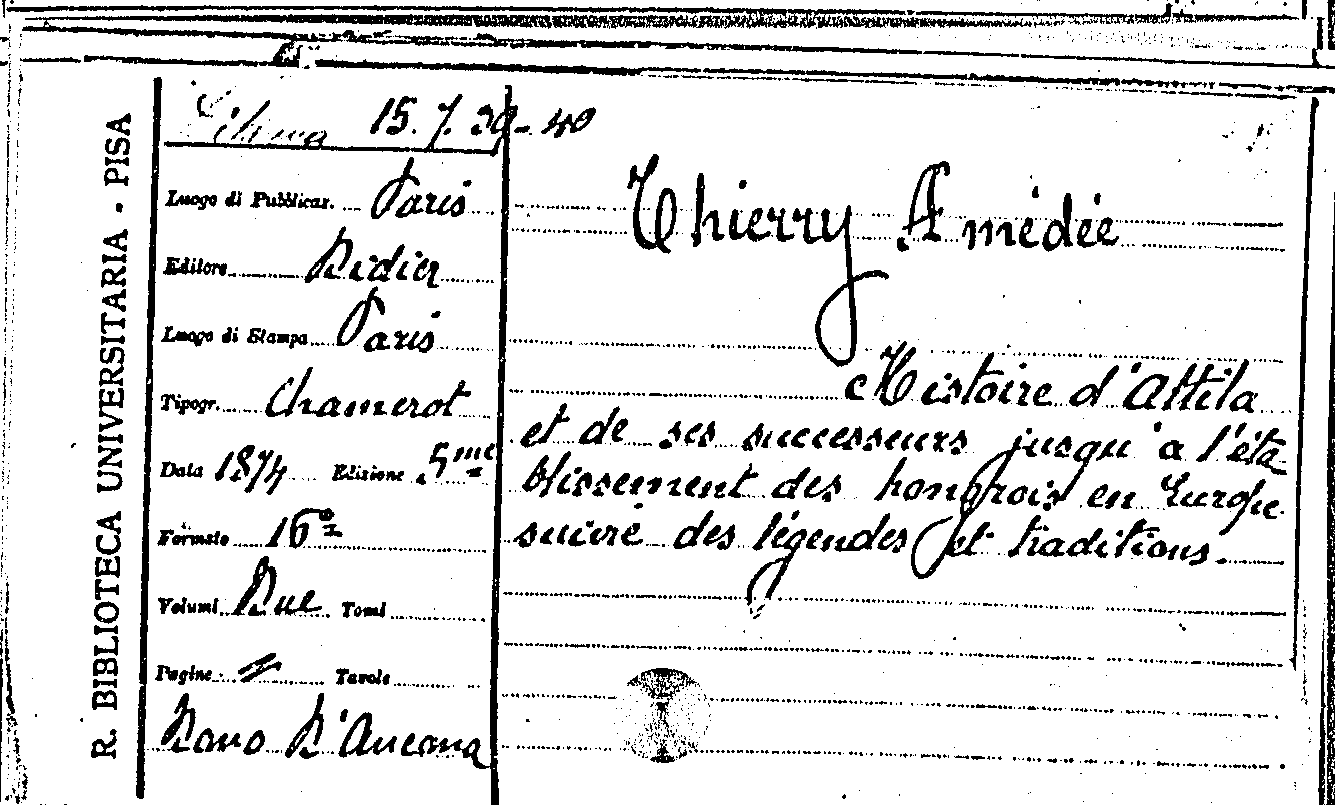 R. BIBLIOTECA UNIVERSITARIA - PISA
15. 7. 39-40
Luogo di Pubblicaz. Paris
Editore Didier
Luogo di Stampa Paris
Tipogr. Chamerot
Data 1874 Edizione 5me
Formato 16º
Volumi Due Tomi
Pagine // Tavole
Dono D'Ancona
Thierry Amédée
Histoire d'Attila
et de ses successeurs jusqu'a l'éta
blissement des hongrois en Europe
suivre des légendes et traditions.